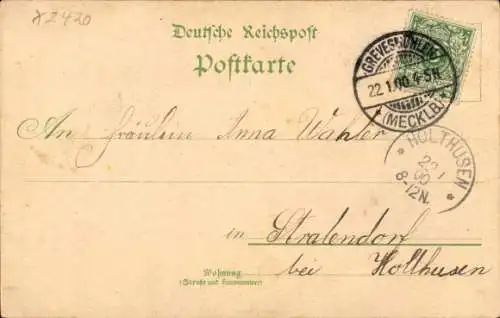 XZ420
Deutsche Reichspost
Postkarte
GREVESMÜHLEN
22.1.00.4-5N
(MECKLB)
An Fräulein Anna Wahler
* HOLTHUSEN *
22 1
00
8-12N.
in Stralendorf
bei Holthusen
Wohnung
(Straße und Hausnummer)